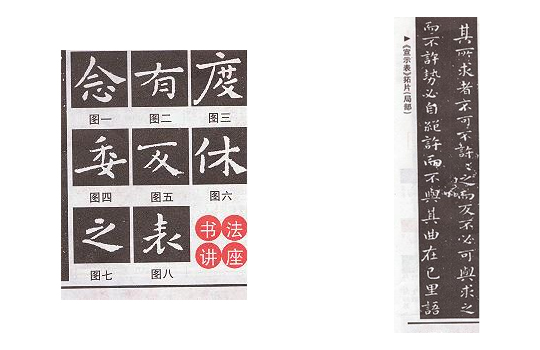 念 有 度
图一 图二 图三
委 反 休
图四 图五 图六
之 表
图七 图八
书法
讲座
▶《宣示表》拓片(局部)
其所求者不可不許之而反不必可與求之
而不許勢必自絕許而不與其曲在己里語